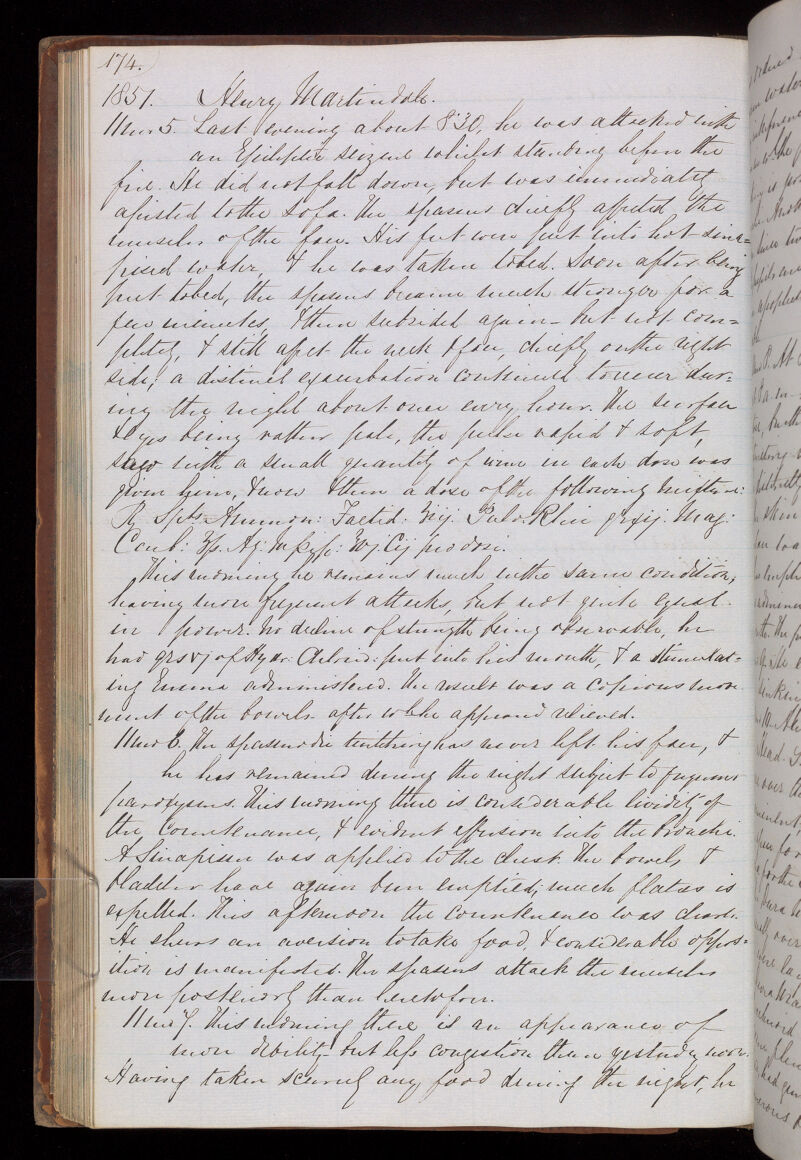 174.
1851. Henry Martindale.
11 mo 5. Last evening about 8.30, he was attacked with
an Epileptic seizure whilst standing before the
fire. He did not fall down, but was immediately
assisted to the sofa. The spasms chiefly affected the
muscles of the face. His feet were put into hot sina=
pised water, & he was taken to bed. Soon after being
put to bed, the spasms became much stronger for a
few minutes, & then subsided again - but not com=
pletely & still affect the neck & face, chiefly on the right
side; a distinct exacerbation continued to recur dur=
ing the night about once every hour. The surface
& lips being rather pale, the pulse rapid & soft,
sago with a small quantity of wine in each dose was
given him, & now & then a dose of the following mixture:
R Spts Ammon: Foetid: ʒij. Pulv Rhei grxij. Mag:
Carb: ʒſs. Aq: M. Pip: ℥vj. Cij pro dosi.
This morning he remains much in the same condition,
having more frequent attacks, but not quite equal
in power. No decline of strength being observable, he
had grs vj of Hydr: Chlorid: put into his mouth, & a stimulat=
ing Enema administered. The result was a copious move
ment of the bowels after wh: he appeared relieved.
11 mo 6. The spasmodic twitching has never left his face, &
he has remained during the night subject to frequent
paroxysms. This morning there is considerable lividity of
the Countenance, & evident effusion into the bronchi.
A Sinapism was applied to the chest. The bowels &
bladder have again been emptied; much flatus is
expelled. This afternoon the countenance was clearer.
He shews an aversion to take food, & considerable oppos=
ition is manifested. The spasms attack the muscles
more posteriorly than heretofore.
11 mo 7. This morning there is an appearance of
more debility but less congestion than yesterday morn.
Having taken scarcely any food during the night, he